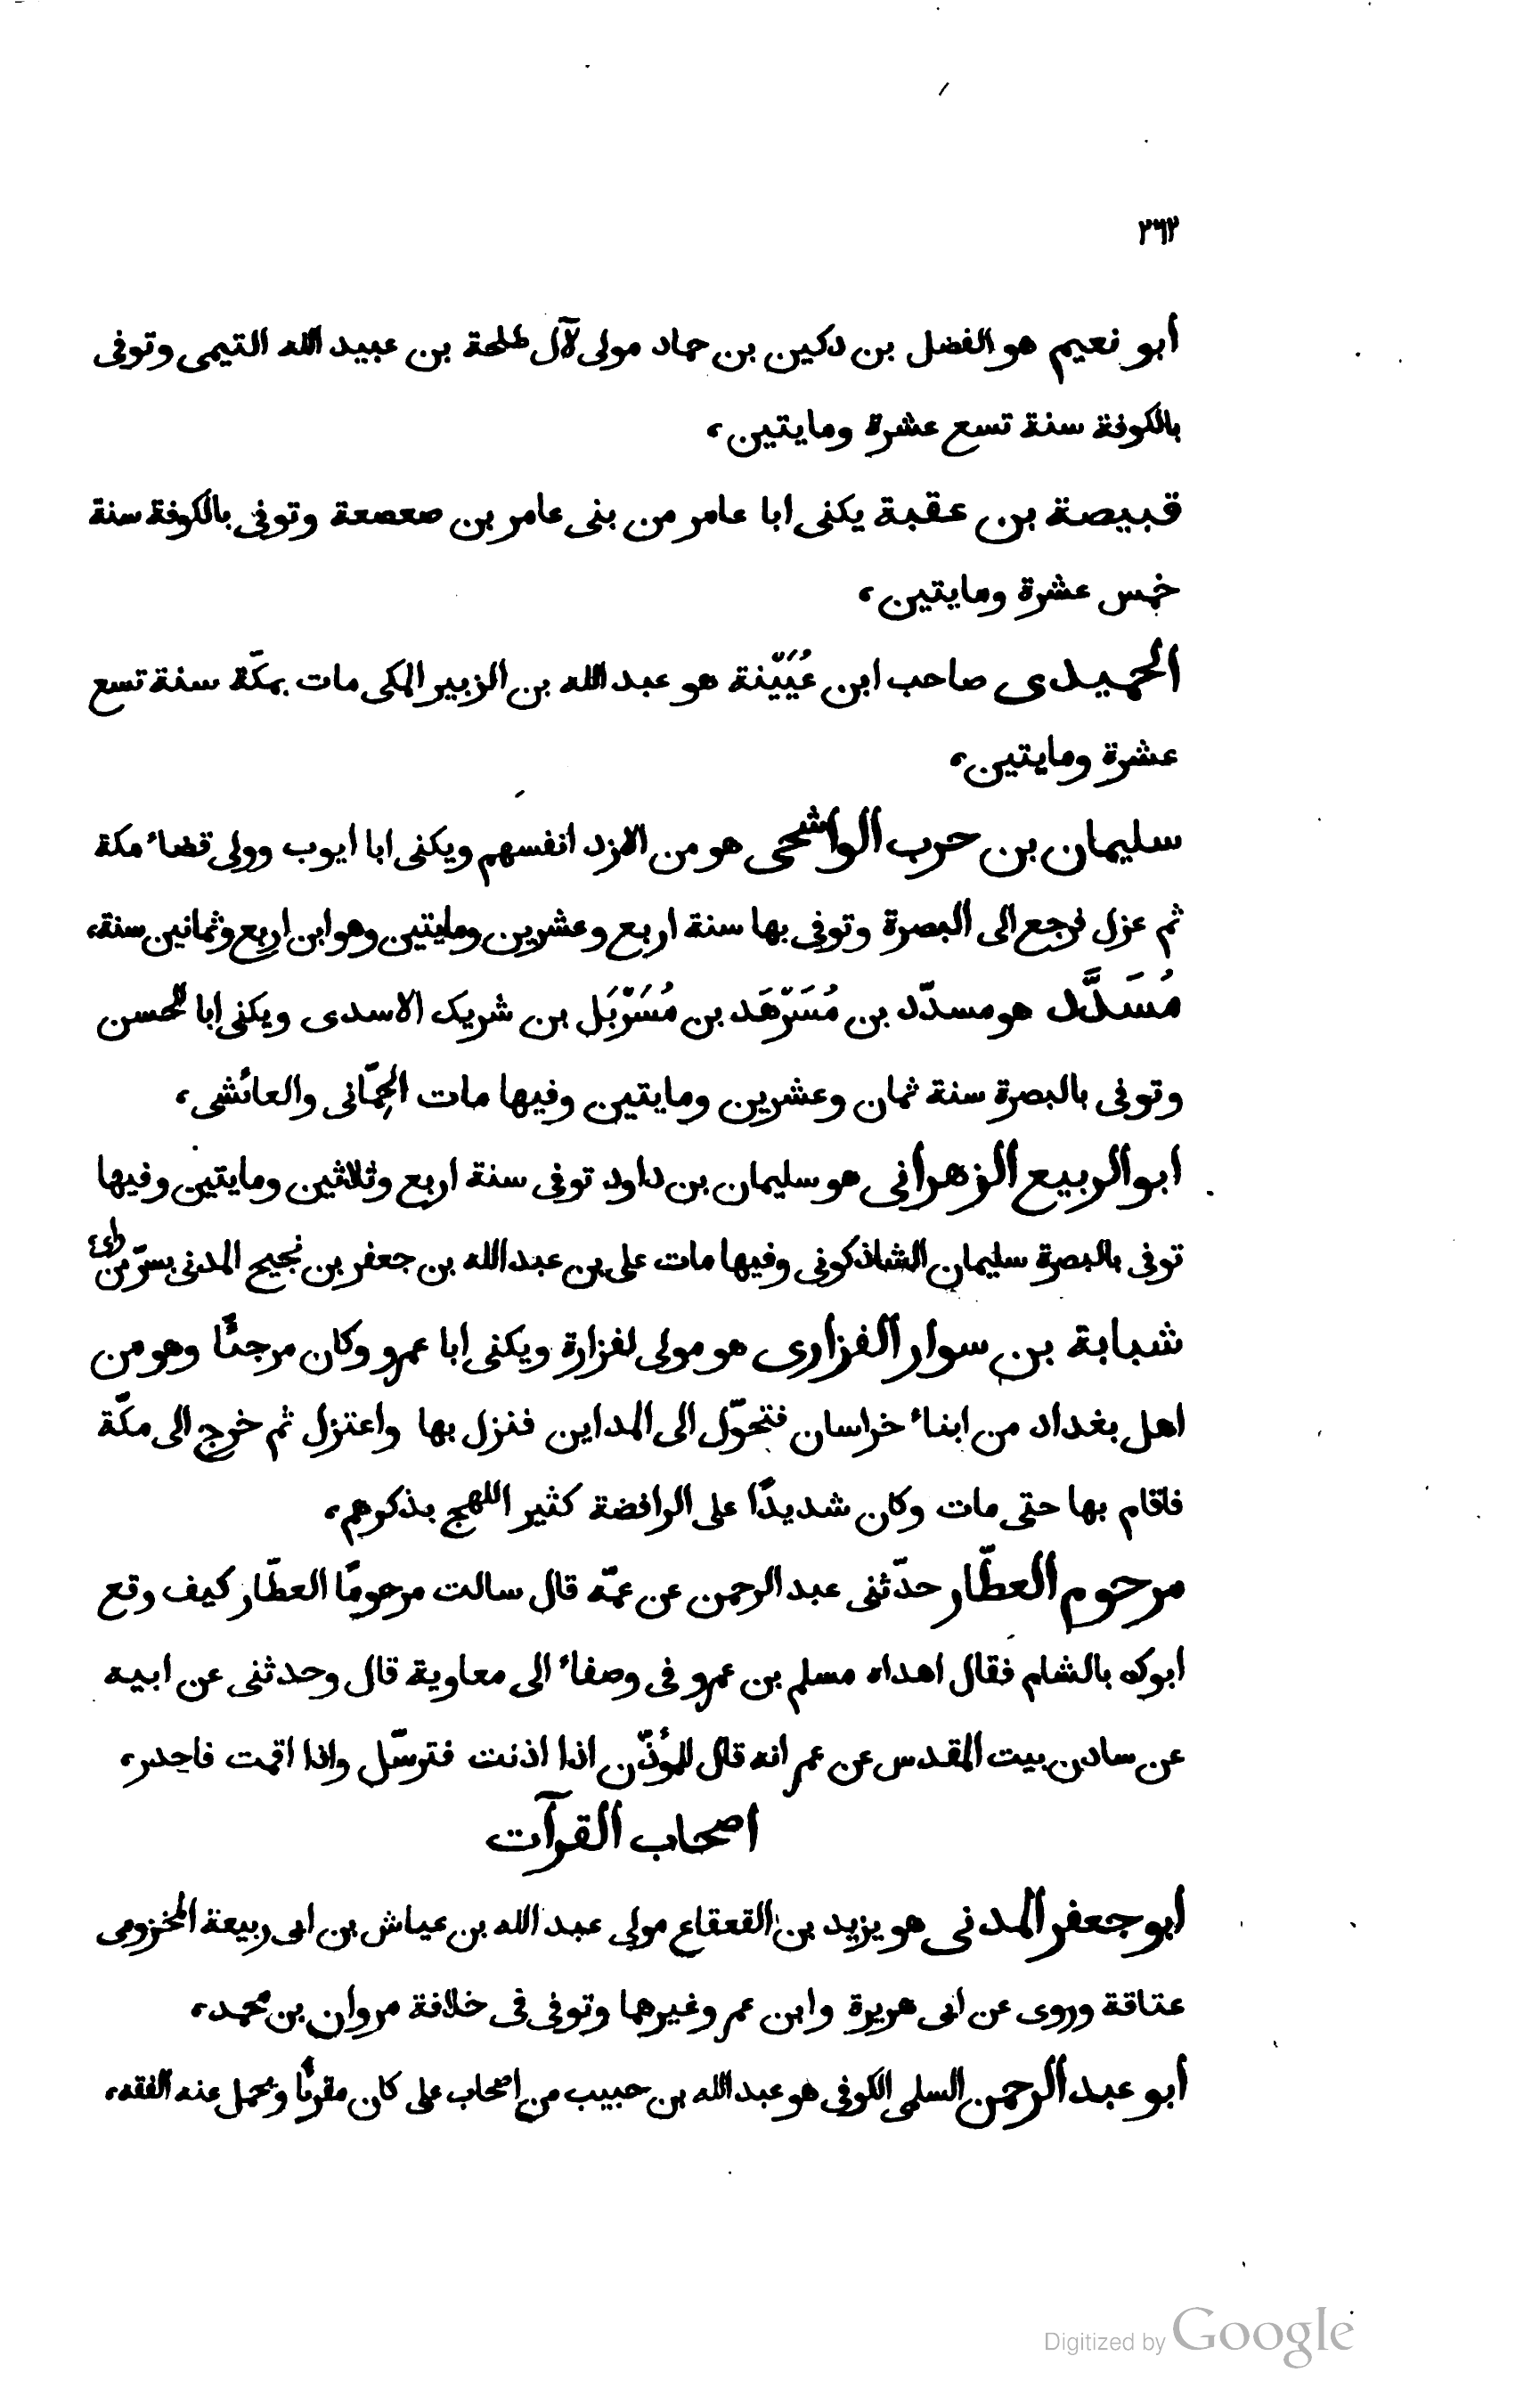 ٢٦٢
أبو نعيم هو الفضل بن دكين بن حماد مولى لآل طلحة بن عبيد الله التيمى وتوفى
بالكوفة سنة تسع عشرة ومايتين،
قبيصة بن عقبة يكنى ابا عامر من بنى عامر بن صعصعة وتوفى بالكوفة سنة
خمس عشرة ومايتين،
الحميدى صاحب ابن عُيَيّنة هو عبد الله بن الزبير المكى مات بمكّة سنة تسع
عشرة ومايتين،
سليمان بن حرب الواشحى هو من الازد انفسهم ويكنى ابا ايوب وولى قضاء مكة
ثم عزل فرجع الى البصرة وتوفى بها سنة اربع وعشرين ومايتين وهو ابن اربع وثمانين سنة،
مُسَدَّد هو مسدّد بن مُسَرّهَد بن مُسَرّبَل بن شريك الاسدى ويكنى ابا الحسن
وتوفى بالبصرة سنة ثمان وعشرين ومايتين وفيها مات الحِمّانى والعائشى،
ابو الربيع الزهرانى هو سليمان بن داود توفى سنة اربع وثلاثين ومايتين وفيها
توفى بالبصرة سليمان الشاذكونى وفيها مات على بن عبد الله بن جعفر بن نجيح المدنى بسرّ من راى،
شبابة بن سوار الفزارى هو مولى لفزارة ويكنى ابا عمرو وكان مرجئًا وهو من
اهل بغداد من ابناء خراسان فتحوّل الى المداين فنزل بها واعتزل ثم خرج الى مكّة
فاقام بها حتى مات وكان شديدًا على الرافضة كثير اللهج بذكرهم،
مرحوم العطّار حدّثنى عبد الرحمن عن عمّه قال سالت مرحومًا العطّار كيف وقع
ابوك بالشام فقال اهداه مسلم بن عمرو فى وصفاء الى معاوية قال وحدثنى عن ابيه
عن سادن بيت المقدس عن عمر انه قال للمؤذّن اذا اذنت فترسّل واذا اقمت فاحدر،
اصحاب القرآت
ابو جعفر المدنى هو يزيد بن القعقاع مولى عبد الله بن عياش بن ابى ربيعة المخزومى
عتاقة وروى عن ابى هريرة وابن عمر وغيرهما وتوفى فى خلافة مروان بن محمد،
أبو عبد الرحمن السلمى الكوفى هو عبد الله بن حبيب من اصحاب على كان مقرئًا ويحمل عنه الفقه،
Digitized by Google